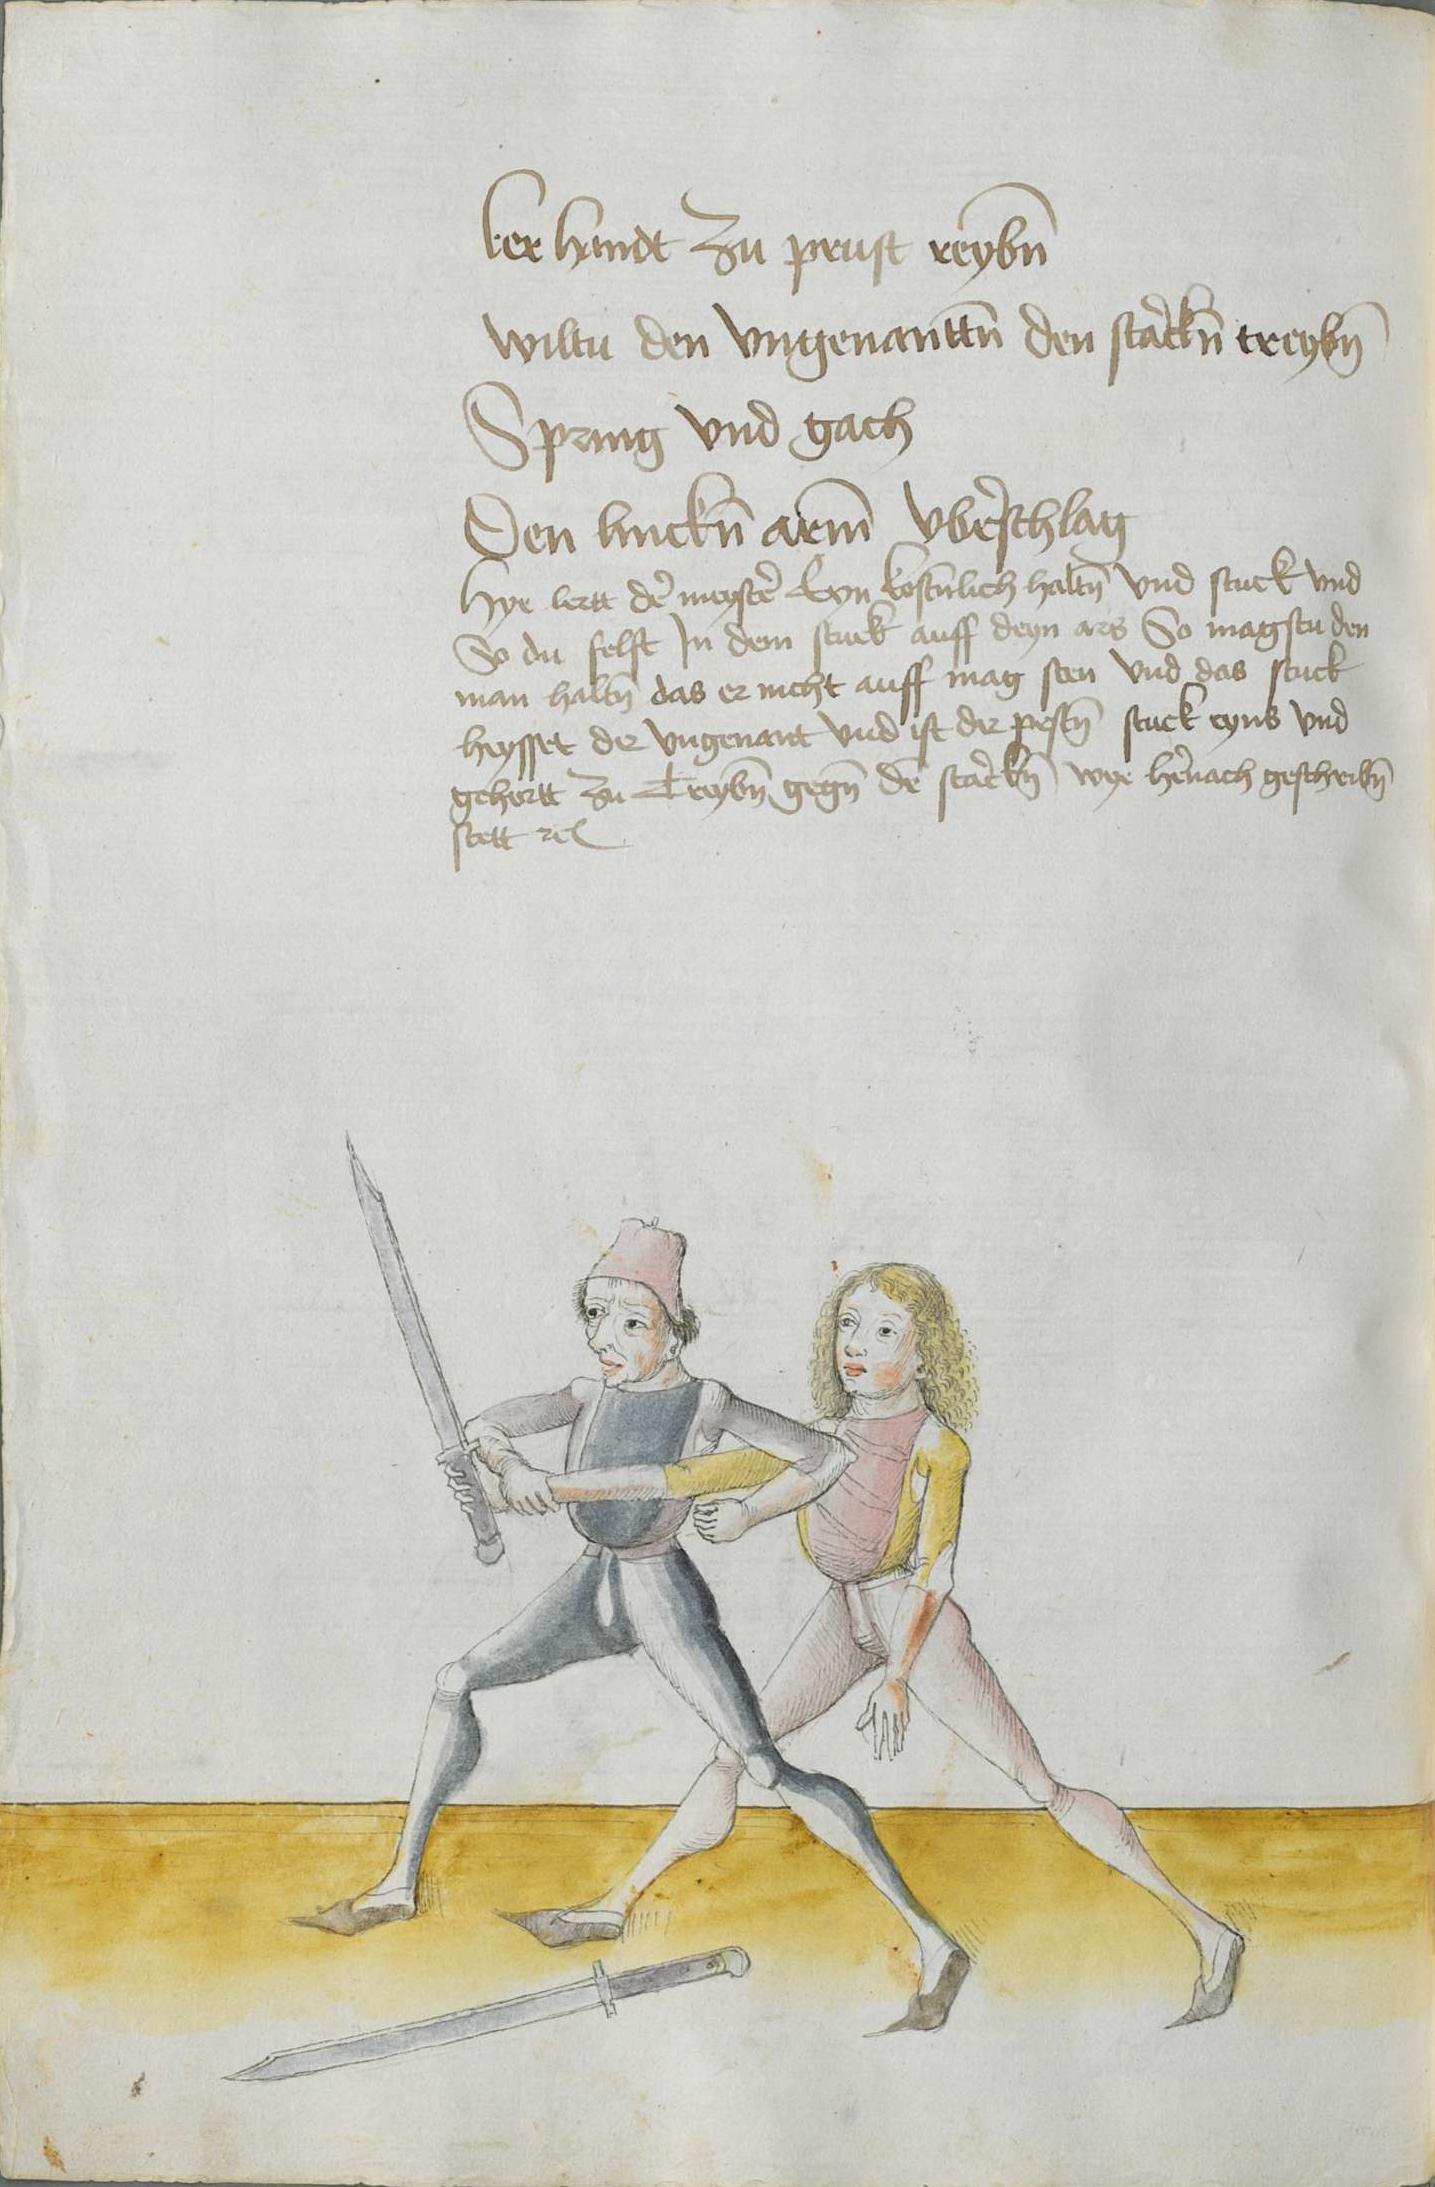 ler handt zu prust reybn̄
wiltu den vngenanttn̄ den starckn̄ treybn̄
Spring vnd gach
Den linckn̄ arm̄ vberschlag
Hye lertt der meyster Eyn kostnlich haltn̄ vnd stuck vnd
So du felst In dem stuck auff deyn ars So magstu den
man haltn̄ das er nicht auff mag sten vnd das stuck
heysset der vngenant vnd ist der pestn̄ stuck eyns vnd
gehortt zu Treybn̄ gegn̄ den̄ starckn̄ wye hernach geschribn̄
stett